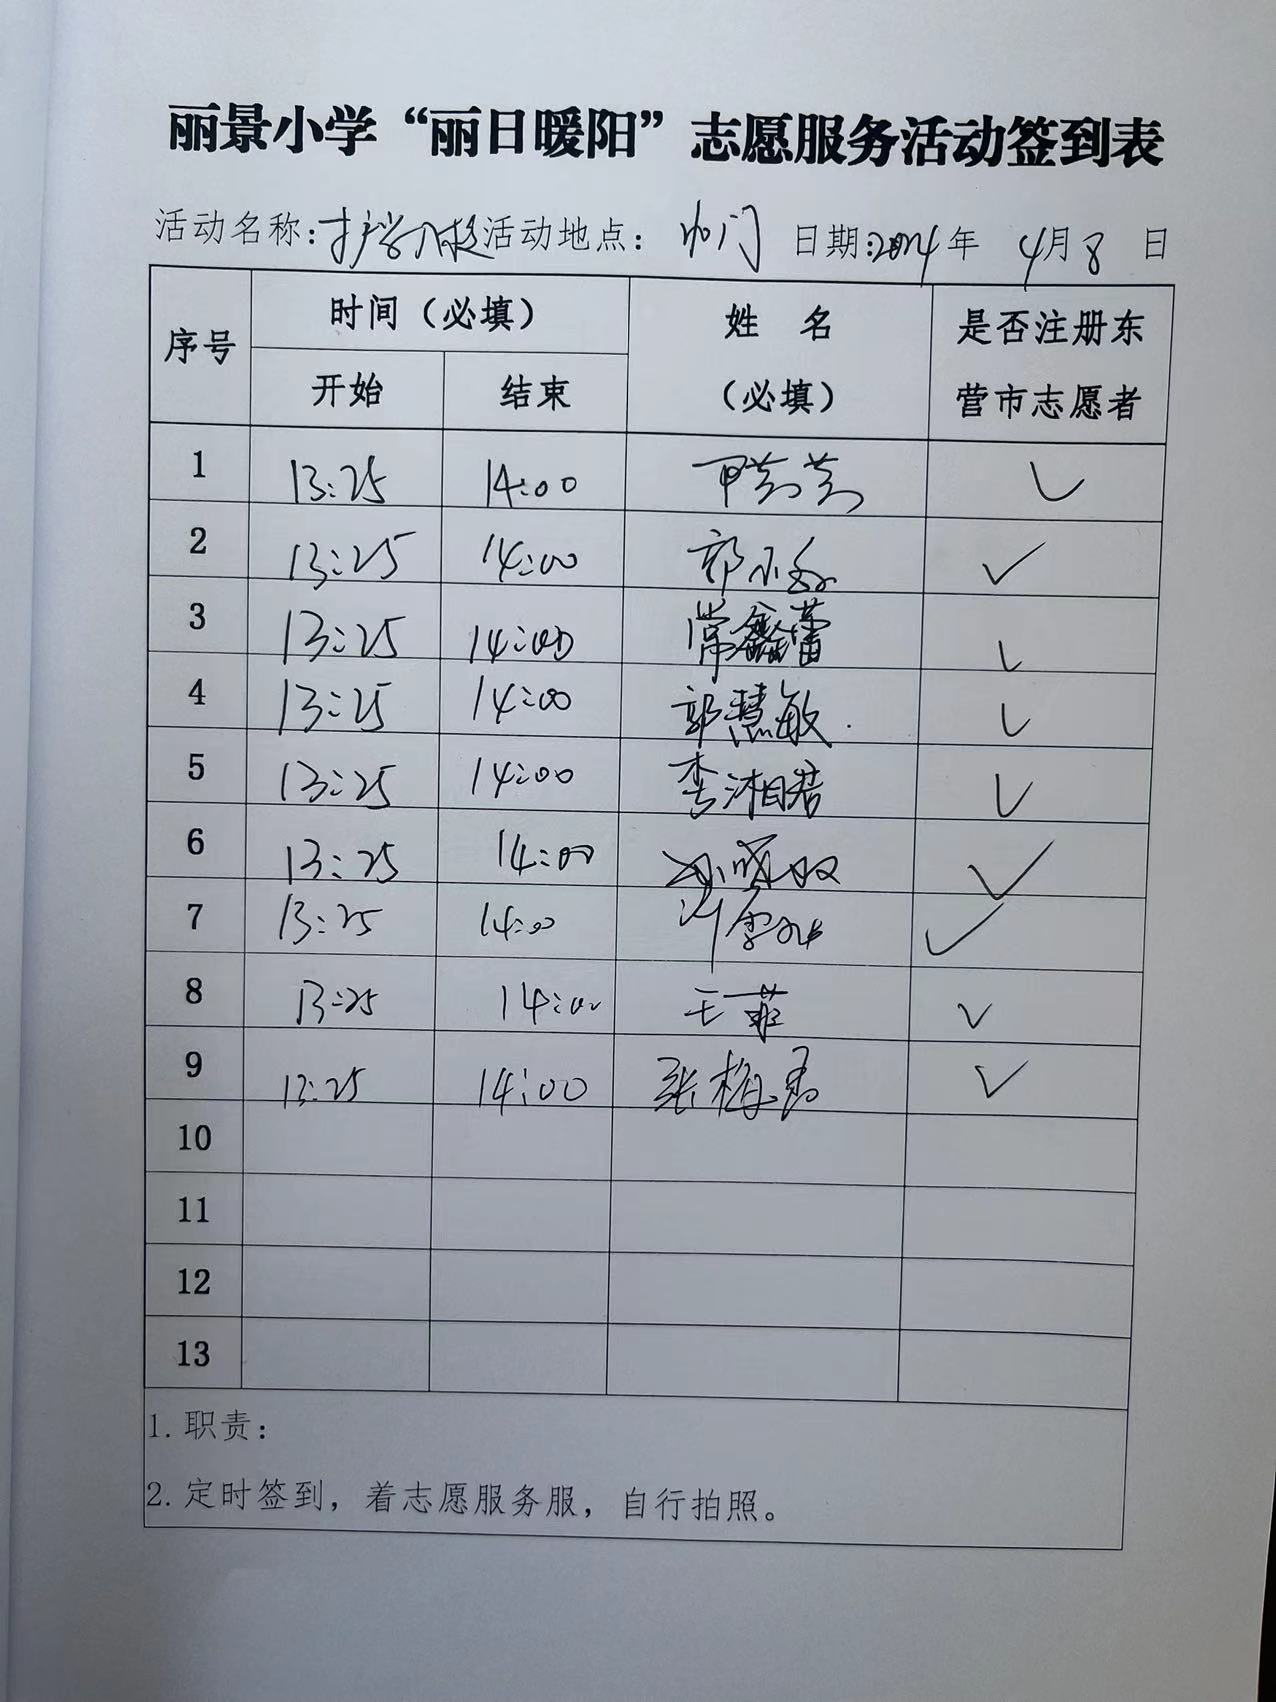 丽景小学“丽日暖阳”志愿服务活动签到表
活动名称:护学入校 活动地点: 门 日期:2024年 4月8日
序号 时间(必填) 姓 名(必填) 是否注册东营市志愿者
开始 结束
1 13:25 14:00 ✓
2 13:25 14:00 郭小 ✓
3 13:25 14:00 常鑫蕾 ✓
4 13:25 14:00 郭慧敏 ✓
5 13:25 14:00 李湘君 ✓
6 13:25 14:00 ✓
7 13:25 14:00 ✓
8 13:25 14:00 王菲 ✓
9 13:25 14:00 张梅 ✓
10
11
12
13
1. 职责:
2. 定时签到，着志愿服务服，自行拍照。